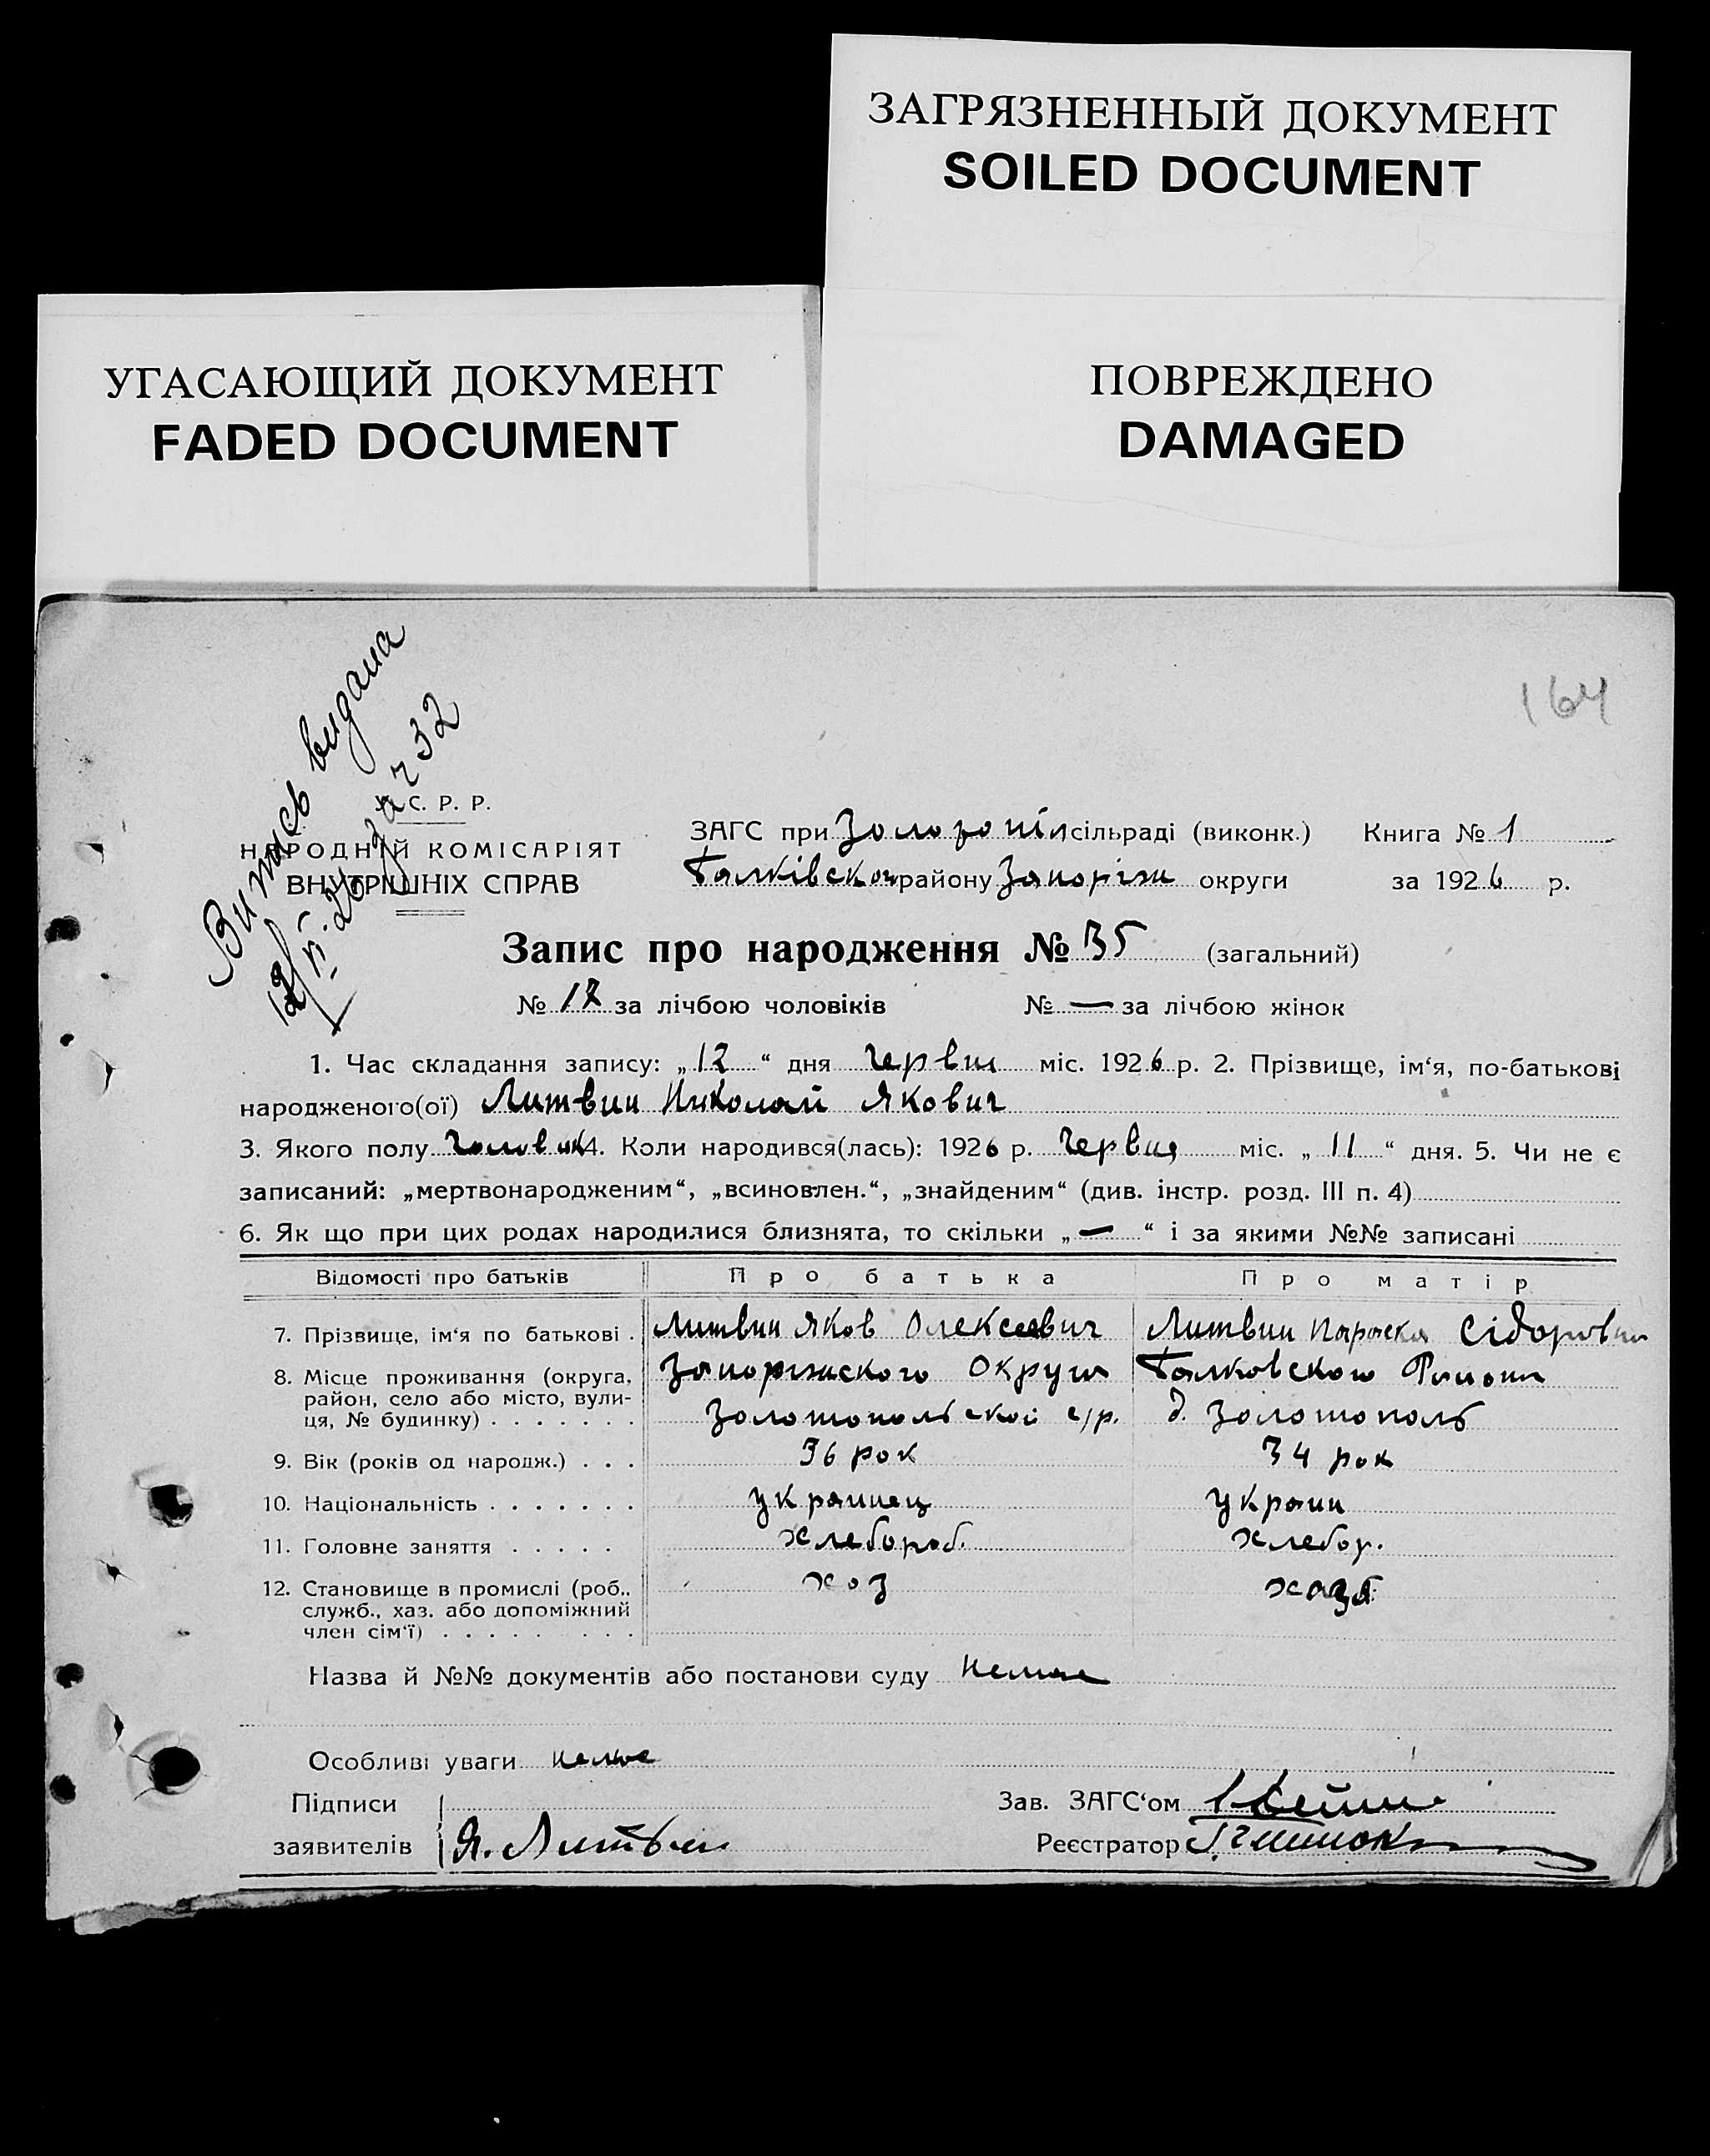 ЗАГРЯЗНЕННЫЙ ДОКУМЕНТ
SOILED DOCUMENT
УГАСАЮЩИЙ ДОКУМЕНТ
FADED DOCUMENT
ПОВРЕЖДЕНО
DAMAGED
164
Витяг видана
32
С. Р. Р.
НАРОДНІЙ КОМІСАРІЯТ
ВНУТРІШНІХ СПРАВ
ЗАГС при Золотопіл сільраді (виконк.) Книга № 1
району Запоріж округи за 1926 р.
Запис про народження № 35 (загальний)
№ 17 за лічбою чоловіків № — за лічбою жінок
1. Час складання запису: „12“ дня Червня міс. 1926 р. 2. Прізвище, ім‘я, по-батькові
народженого(ої) Литвин Николай Якович
3. Якого полу чоловік 4. Коли народився(лась): 1926 р. Червня міс. „11“ дня. 5. Чи не є
записаний: „мертвонародженим“, „всиновлен.“, „знайденим“ (див. інстр. розд. III п. 4)
6. Як що при цих родах народилися близнята, то скільки „—“ і за якими №№ записані
Відомості про батьків Про батька Про матір
7. Прізвище, ім‘я по батькові . Литвин Яков Олексеевич Литвин Параска Сідоровна
8. Місце проживання (округа, Запоріжского Округа Района
район, село або місто, вули-
ця, № будинку) . . . . . . . Золотопольской с/р. д. Золотополь
9. Вік (років од народж.) . . . 36 рок 34 рок
10. Національність . . . . . . . украинец украин
11. Головне заняття . . . . . хлебороб. хлебор.
12. Становище в промислі (роб., хоз хазя.
служб., хаз. або допоміжний
член сім‘ї) . . . . . . . .
Назва й №№ документів або постанови суду Немає
Особливі уваги немає
Підписи Зав. ЗАГС‘ом
заявителів Я. Литвин Реєстратор